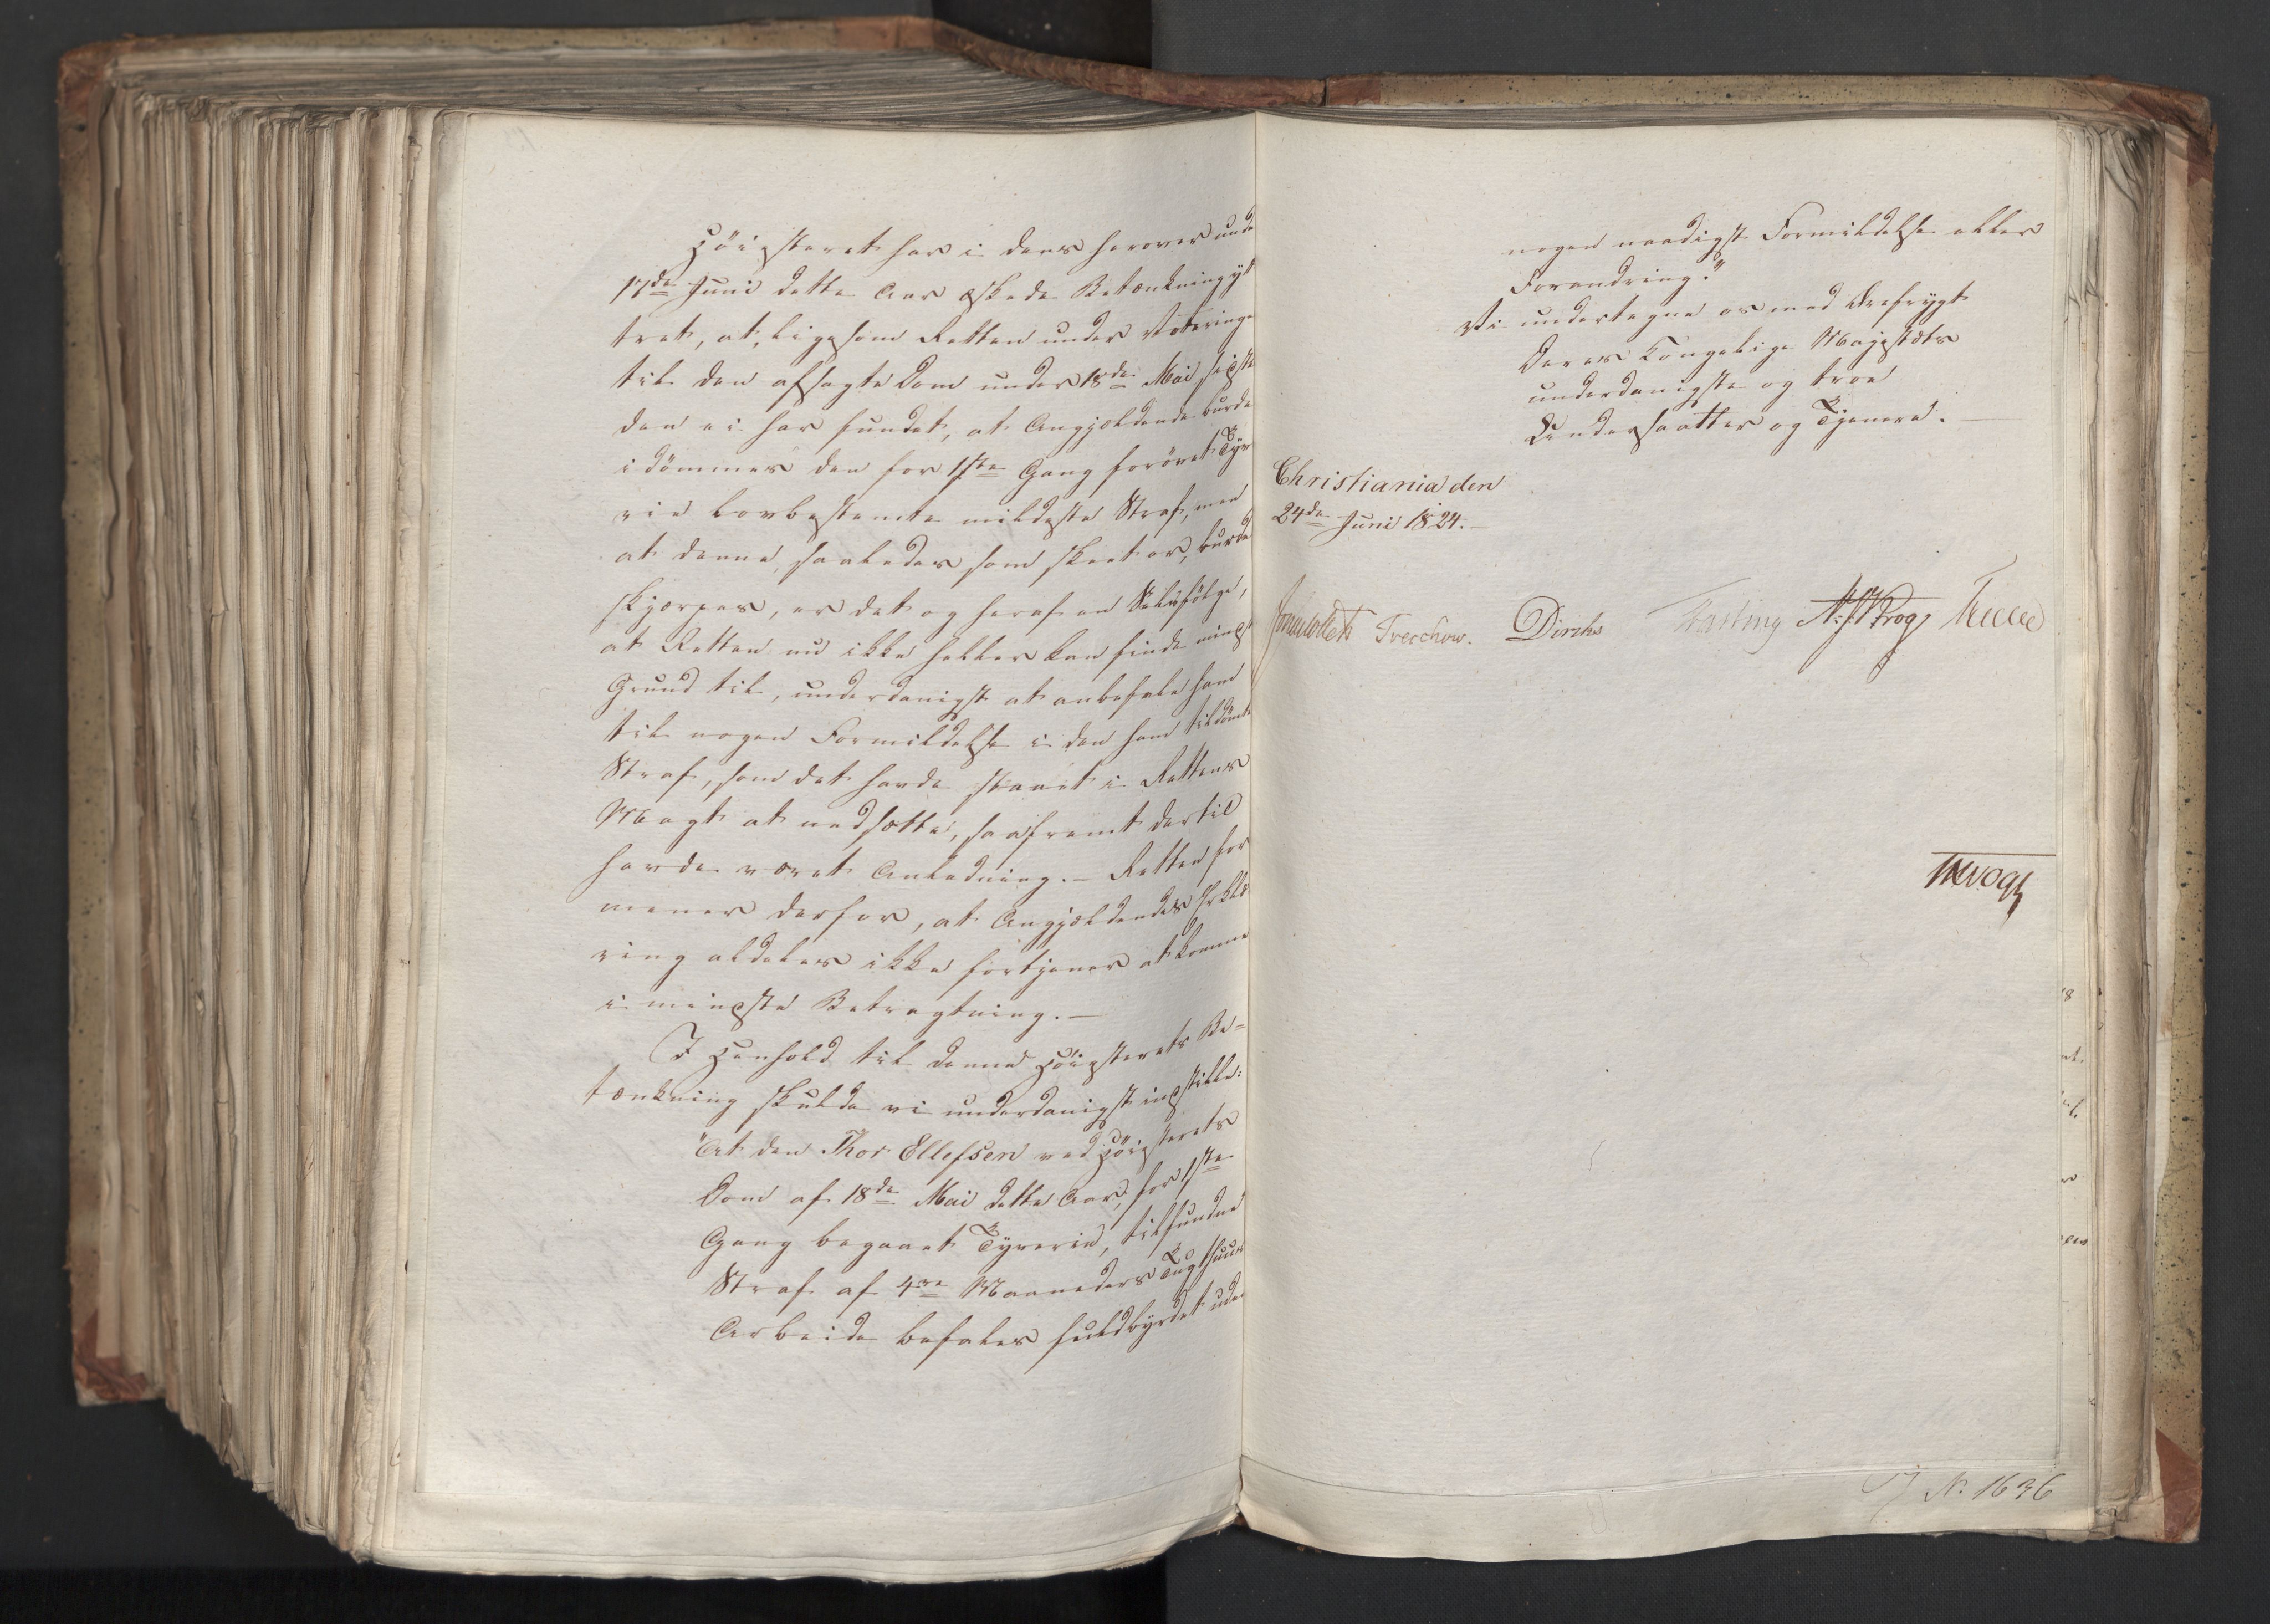 Höiesteret har i dens herover unde
17de Juni dette Aar æskede Betænkning yt
tret, at, ligesom Retten under Voteringe
til den afsagte Dom under 18de Mai sidst
den ei har fundet, at Angjældende burde
idømmes den for 1ste Gang forøvet Tyv
rie lovbestemte mildeste Straf, men
at denne, saaledes som skeet er, burde
skjærpes, er det og heraf en Selvfølge,
at Retten nu ikke heller kan finde mindst
Grund til, underdanigst at anbefale ham
til nogen Formildelse i den ham tildömte
Straf, som det havde staaet i Rettens
Magt at nedsætte, saafremt dertil
havde været Anledning. – Retten for
mener derfor, at Angjældendes Erklæ
ring aldeles ikke fortjener at komme
i mindste Betragtning. –
I Henhold til denne Höiesterets Be=
tænkning skulde vi underdanigst indstille:
"At den Thor Ellefsen ved Höiesterets
Dom af 18de Mai dette Aar, for 1ste
Gang begaaet Tyverie, tilfundne
Straf af 4re Maaneders Tugthuus
Arbeide befales fuldbyrdet uden
nogen naadigst Formildelse eller
Forandring."
Vi undertegne os med Ærefrygt
Deres Kongelige Majestæts
underdanigste og troe
Undersaatter og Tjenere. –
Christiania den
24de Juni 1824. –
Jonas Collett Treschow. Diriks Fasting N. J. Krog
JHVogt
N. 1636